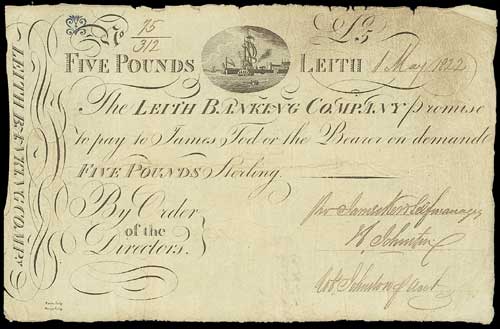 No 75/912
£5
FIVE POUNDS LEITH 1 May 1822
The LEITH BANKING COMPANY promise
to pay to James Tod or the Bearer on demand
FIVE POUNDS Sterling.
By Order
of the
Directors.
pro James Ker & Self manager
H. Johnston
Accnt
LEITH BANKING COMPY